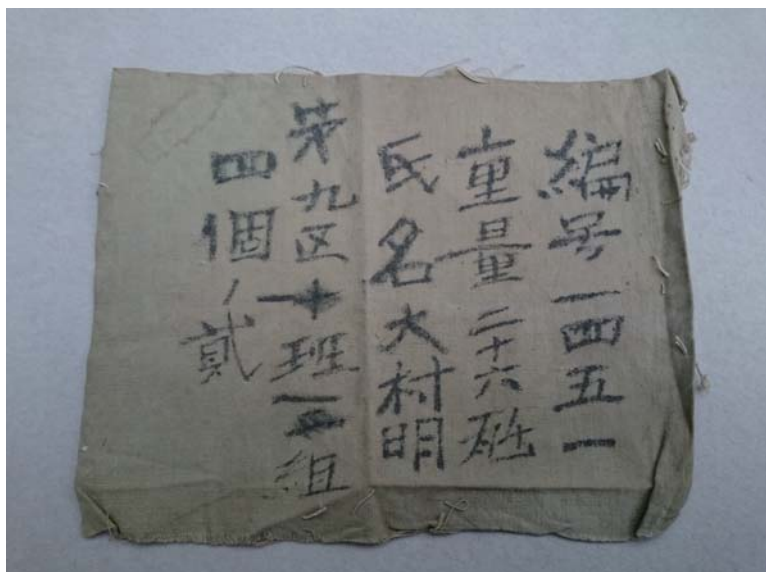 編号一四五一
重量二十六
氏名大村明
第九区十班組
四個ノ貳